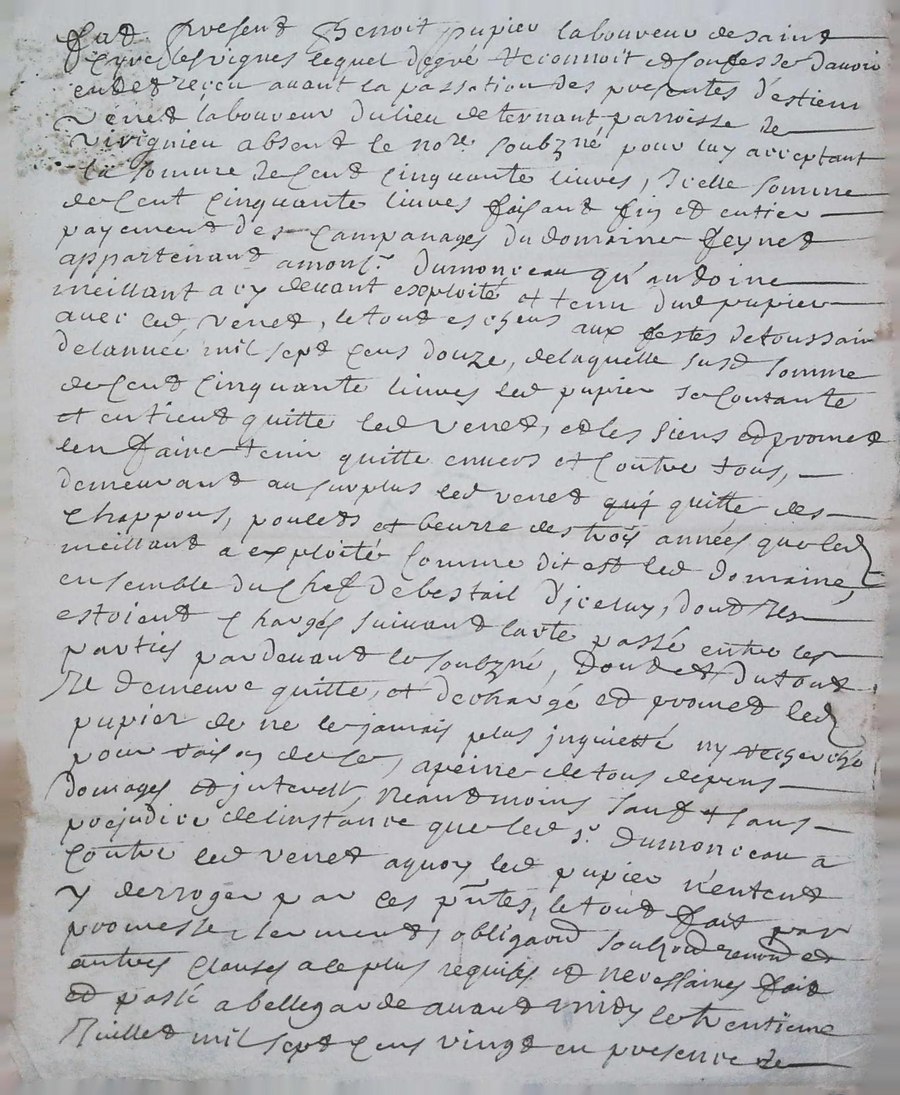 fut présent Benoit pupier laboureur de saint
Cyre les vignes lequel de gré reconnoit et confesse d'avoir
eu et reçeu avant la passation des presentes d'estiene
Venet laboureur du lieu de ternant parroisse de
virignieu absent le no.re soubzné pour luy acceptant
la somme de Cent cinquante livres, Icelle somme
de Cent cinquante livres faisant fin et entier
payement des Campanages du domaine feynet
appartenant a mons.r dumonceau qu'andoine
meillant a cy devant exploité et tenu dud pupier
avec led venet, le tout escheus aux festes de toussain
de lannée mil sept cens douze, de laquelle susd somme
de Cent cinquante livres led pupier se Contante
et en tient quitte led venet, et les siens et promet
len faire tenir quitte envers et Contre tous,
demeurant au surplus led venet quitte des
chappons, poulets et beurre des trois années que led
meillant a exploité Comme dit est led domaine,
ensemble du chef de bestail d'iceluy, dont Ils
estoient chargés suivant lacte passé entre les
parties pardevant le soubzné, dont et du tout
Il demeure quitte, et dechargé et promet led
pupier de ne le jamais plus inquietté ny recherché
pour raison de ce, a peine de tous depens
domages et interest, neantmoins sauf et sans
prejudice de linstance que led s.r dumonceau a
Contre led venet a quoy led pupier n'entent
y derroger par ces pntes, le tout fait par
promesse, serment, obligaon soubzon renon et
autres clauses a ce plus requises et necessaires fait
et passé a bellegarde avant midy le trentieme
Juillet mil sept cens vingt en presence de